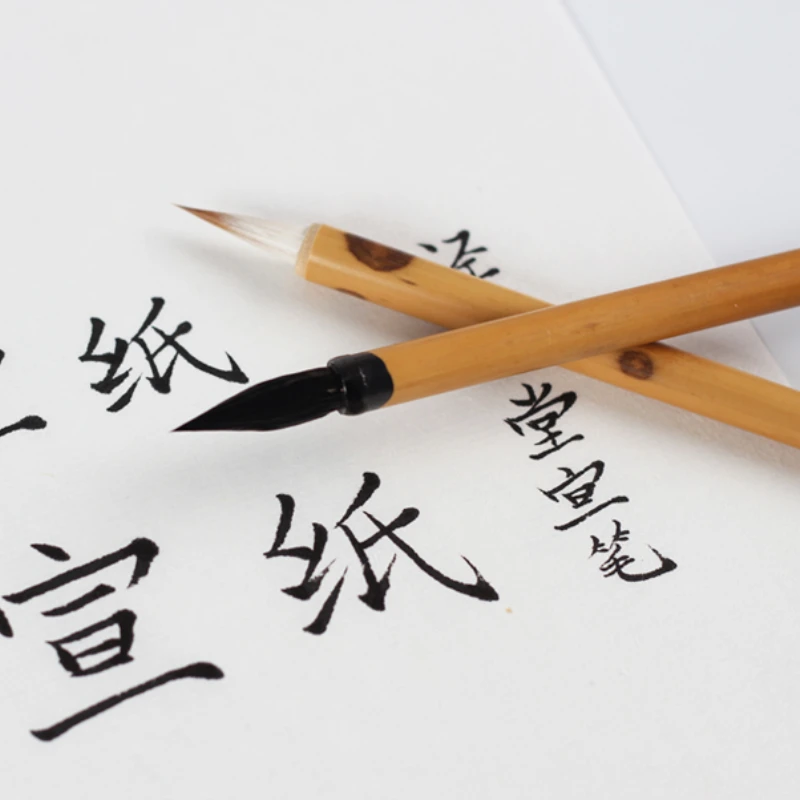 纸
宣纸
堂宣笔